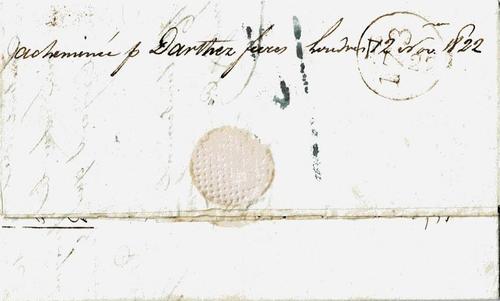 acheminée p Darthez freres Londres 12 Nov 1822
173